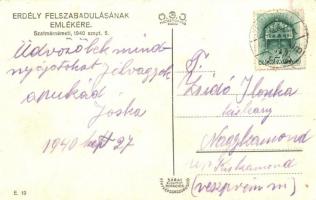 ERDÉLY FELSZABADULÁSÁNAK
EMLÉKÉRE.
Szatmárnémeti, 1940 szept. 5.
Üdvözölek mind-
nyájotokat Jól vagyok
apukád
Jóska
1940 szept 27
O.S.O
T.
Zsidó Ilonka
Nagykamond
up Kiskamond
(veszprém m)
E. 10